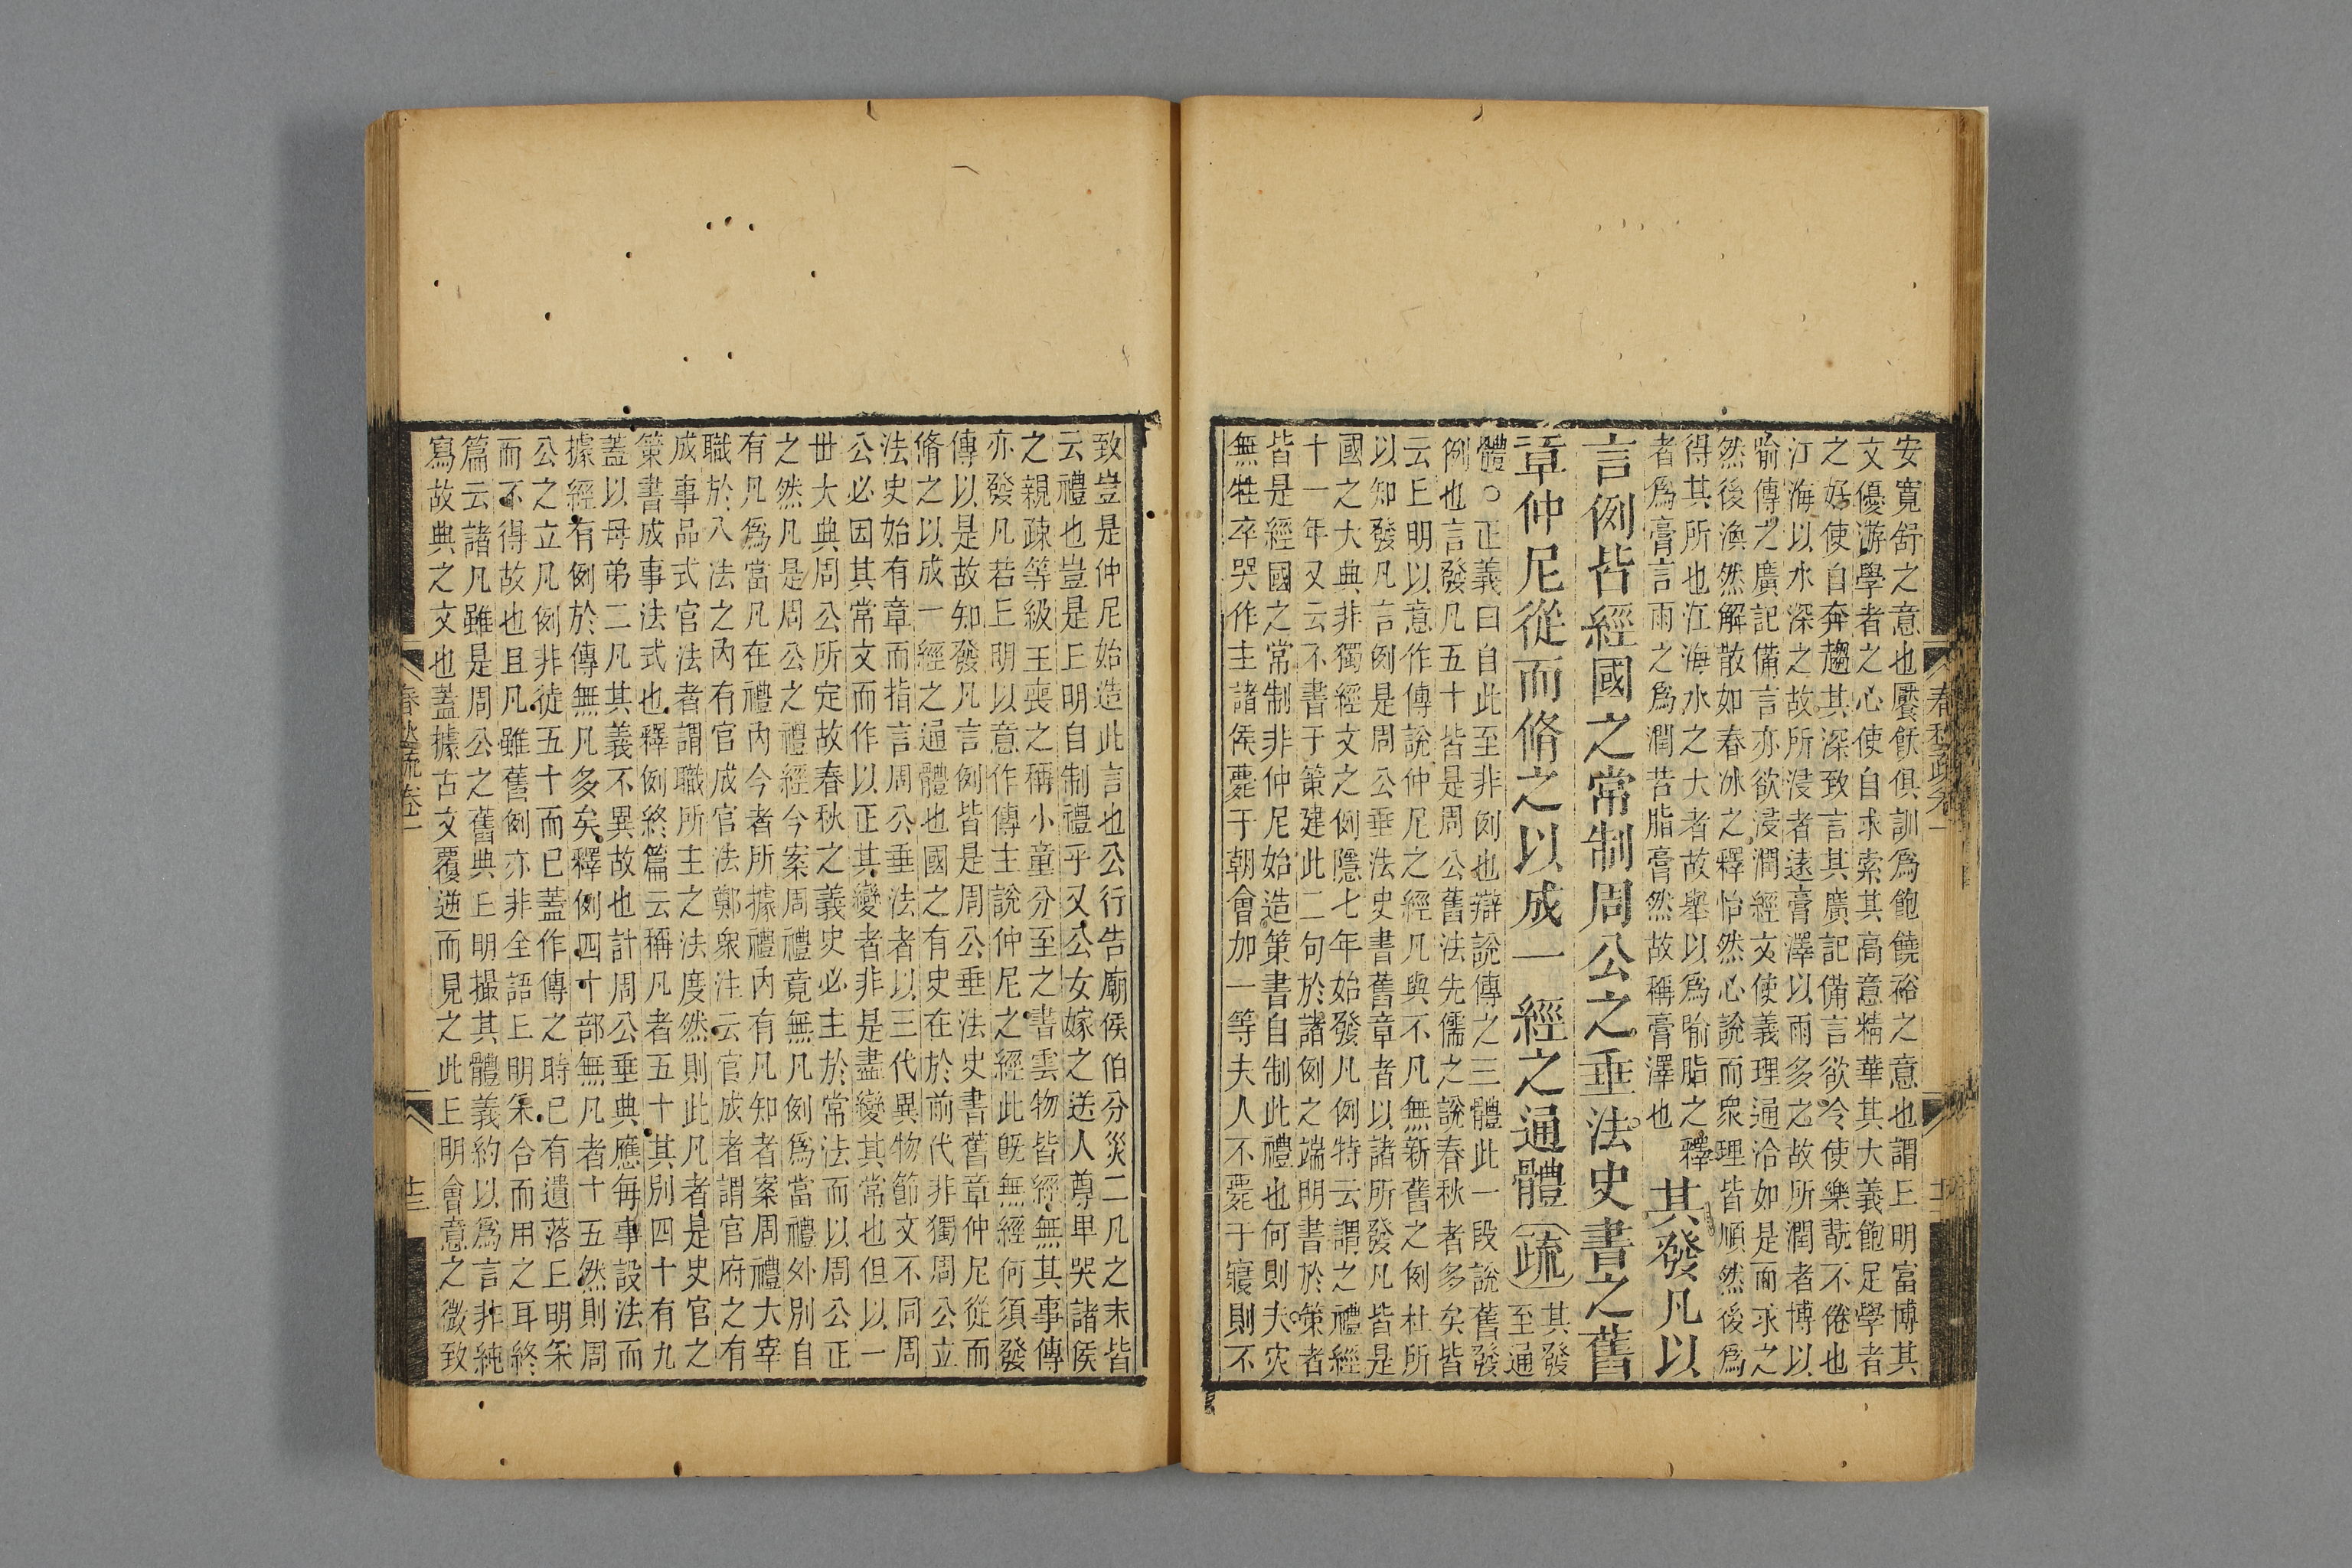 安寬舒之意也饜飫俱訓爲飽饒裕之意也謂丘明富博其
文優游學者之心使自求索其高意精華其大義飽足學者
之好使自奔趨其深致言其廣記備言欲令使樂翫不倦也
江海以水深之故所浸者遠膏澤以雨多之故所潤者博以
喻傳之廣記備言亦欲浸潤經文使義理通洽如是而求之
然後渙然解散如春冰之釋怡然心說而衆理皆順然後爲
得其所也江海水之大者故舉以爲喻脂之釋
者爲膏言雨之爲潤若脂膏然故稱膏澤也
其發凡以
言例皆經國之常制周公之垂法史書之舊
章仲尼從而脩之以成一經之通體
疏
其發
至通
體○正義曰自此至非例也辯說傳之三體此一段說舊發
例也言發凡五十皆是周公舊法先儒之說春秋者多矣皆
云丘明以意作傳說仲尼之經凡與不凡無新舊之例杜所
以知發凡言例是周公垂法史書舊章者以諸所發凡皆是
國之大典非獨經文之例隱七年始發凡例特云謂之禮經
十一年又云不書于策建此二句於諸例之端明書於策者
皆是經國之常制非仲尼始造策書自制此禮也何則夫灾
無牲卒哭作主諸侯薨于朝會加一等夫人不薨于寢則不
致豈是仲尼始造此言也公行告廟侯伯分災二凡之末皆
云禮也豈是丘明自制禮乎又公女嫁之送人尊卑哭諸侯
之親疎等級王喪之稱小童分至之書雲物皆經無其事傳
亦發凡若丘明以意作傳主說仲尼之經此旣無經何須發
傳以是故知發凡言例皆是周公垂法史書舊章仲尼從而
脩之以成一經之通體也國之有史在於前代非獨周公立
法史始有章而指言周公垂法者以三代異物節文不同周
公必因其常文而作以正其變者非是盡變其常也但以一
世大典周公所定故春秋之義史必主於常法而以周公正
之然凡是周公之禮經今案周禮竟無凡例爲當禮外別自
有凡爲當凡在禮內今者所據禮內有凡知者案周禮大宰
職於八法之內有官成官法鄭衆注云官成者謂官府之有
成事品式官法者謂職所主之法度然則此凡者是史官之
策書成事法式也釋例終篇云稱凡者五十其別四十有九
蓋以母弟二凡其義不異故也計周公垂典應每事設法而
據經有例於傳無凡多矣釋例四十部無凡者十五然則周
公之立凡例非徒五十而已蓋作傳之時已有遺落丘明采
而不得故也且凡雖舊例亦非全語丘明采合而用之耳終
篇云諸凡雖是周公之舊典丘明撮其體義約以爲言非純
寫故典之文也蓋據古文覆逆而見之此丘明會意之微致
春秋疏卷一
十三